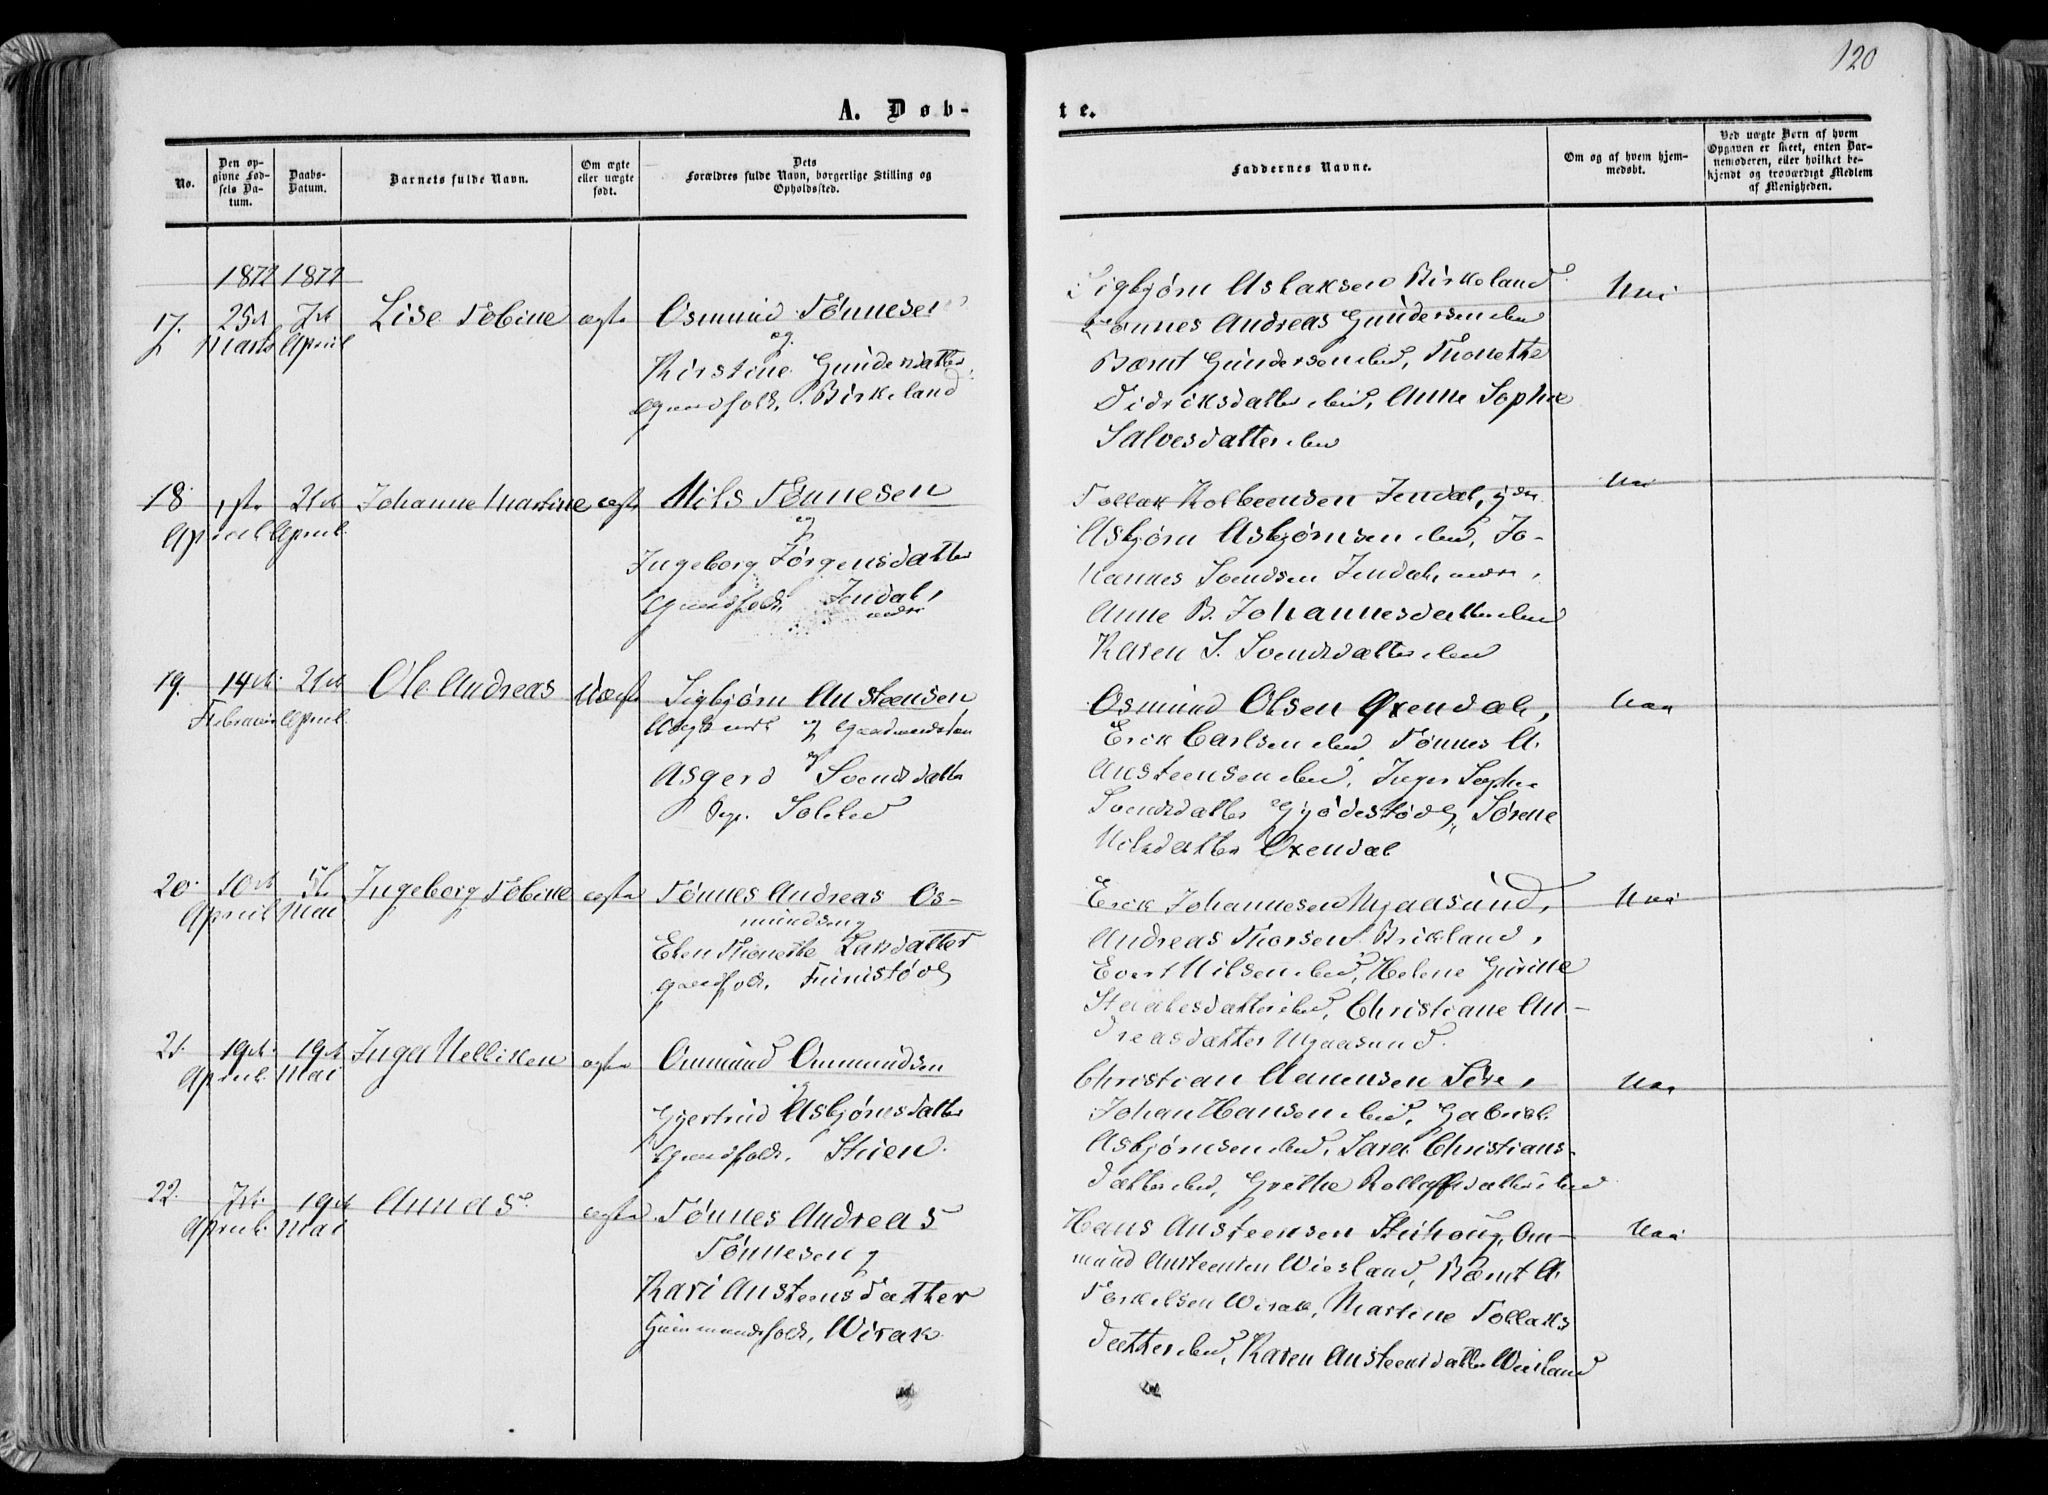 120
A. Døb-
te.
No.
Den op-
givne Fød-
sels Da-
tum.
Daabs-
Datum.
Barnets fulde Navn.
Om ægte
eller uægte
født.
Dets
Forældres fulde Navn, borgerlige Stilling og
Opholdssted.
Faddernes Navne.
Om og af hvem hjem-
medøbt.
Ved uægte Børn af hvem
Opgaven er skeet, enten Bar-
nemoderen, eller hvilket be-
kjendt og troværdigt Medlem
af Menigheden.
1872 1872
17. 25de 7de Lise Tobine ægte Osmund Tønnesen
Marts April og
Kirstine Gundersdatter
Gaardfolk, Birkeland
Sigbjørn Aslaksen Birkeland Nei
Tønnes Andreas Gundersen ibid
Bærnt Gundersen ibid, Thonethe
Didriksdatter ibid, Anne Sophie
Salvesdatter ibid
18. 1ste 21de Johanne Martine ægte Nils Tønnesen
April April og
Ingeborg Jørgensdatter
Gaardfolk, Jendal,
nedre
Tollak Kolbeensen Jendal, ydre Nei
Asbjørn Asbjørnsen ibid, Jo-
hannes Svendsen Jendal, nedre,
Anne B. Johannesdatter ibid
Karen S. Svendsdatter ibid
19. 14de 21de Ole Andreas Uægte Sigbjørn Austeensen
Februar April
og
Asgerd Svendsdatter
Pige. Solli
Osmund Olsen Oxendal, Nei
Erik Carlsen ibid, Tønnes A.
Austeensen ibid, Inger Sophie
Svendsdatter Gjødestøl, Sørene
Nilsdatter Oxendal
20. 10de 5te Ingeborg Tobine ægte Tønnes Andreas Os-
April Mai mundsen og
Elen Thonethe Larsdatter
Gaardfolk, Fuinistøl
Erik Johannesen Mjaasund, Nei
Andreas Thorsen Birkland,
Evert Nilsen ibid, Helene Gurine
datter ibid, Christiane An-
dreasdatter Mjaasund.
21. 19de 19de Inger Nelliken ægte Ommund Ommundsen
April Mai og
Gjertrud Asbjørnsdatter
Gaardfolk, Stuen.
Christian Aanensen Sire, Nei
Johan Hansen ibid, Gabriel
Asbjørnsen ibid, Sara Christians-
datter ibid, Grethe datter ibid
22. 7de 19de Aanas ægte Tønnes Andreas
April Mai Tønnesen og
Kari Austeensdatter
Huusmandsfolk, Wirak
Hans Austeensen Stuhoug, Om- Nei
mund Austeensen Wiesland, Bærnt A.
Terkelsen Wirak, Martine Tollaks
datter ibid, Karen Austeensdatter Wiesland